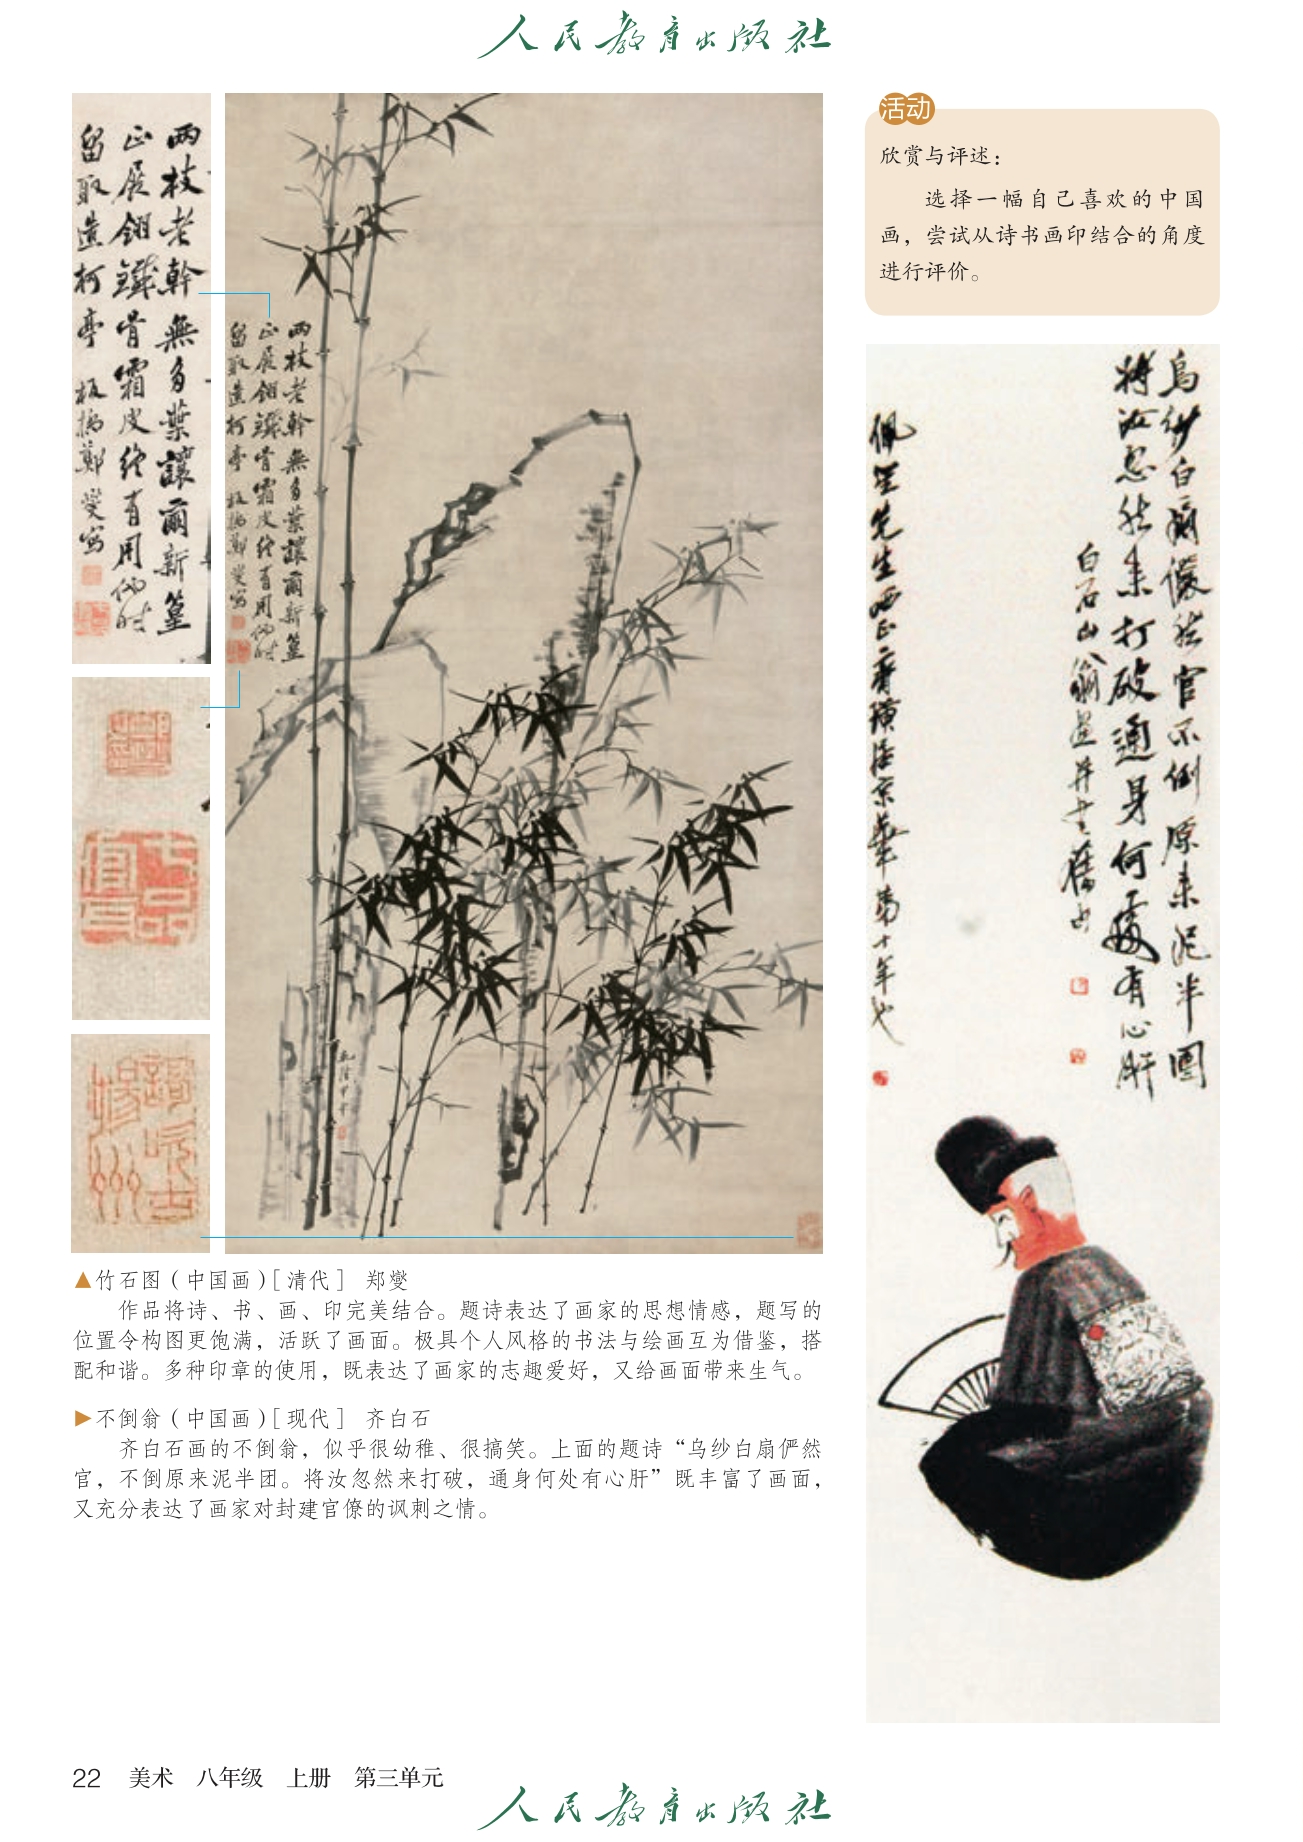 人民教育出版社
两枝老幹無多葉讓爾新篁
正展鉏鐵骨霜皮終有用他时
留取造柯亭 板橋鄭燮寫
两枝老幹無多葉讓爾新篁
留取造柯亭 板橋鄭燮寫
七品官耳
乾隆甲申
活动
欣赏与评述：
选择一幅自己喜欢的中国
画，尝试从诗书画印结合的角度
进行评价。
烏紗白扇儼然官不倒原来泥半團
将汝忽然来打破通身何處有心肝
白石山翁題并書舊句
佩星先生晒正齊璜居京華第十年也
▲竹石图（中国画）［清代］ 郑燮
作品将诗、书、画、印完美结合。题诗表达了画家的思想情感，题写的
位置令构图更饱满，活跃了画面。极具个人风格的书法与绘画互为借鉴，搭
配和谐。多种印章的使用，既表达了画家的志趣爱好，又给画面带来生气。
▶不倒翁（中国画）［现代］ 齐白石
齐白石画的不倒翁，似乎很幼稚、很搞笑。上面的题诗“乌纱白扇俨然
官，不倒原来泥半团。将汝忽然来打破，通身何处有心肝”既丰富了画面，
又充分表达了画家对封建官僚的讽刺之情。
22 美术 八年级 上册 第三单元
人民教育出版社